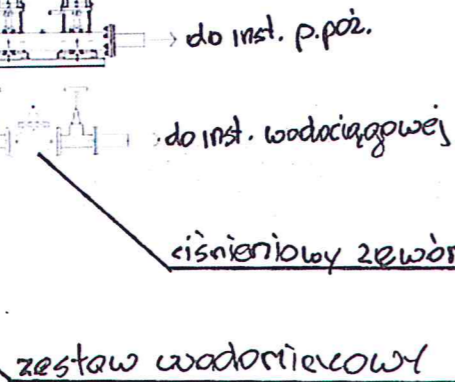 do inst. p.poż.
do inst. wodociągowej
ciśnieniowy zawór
zestaw wodomierzowy